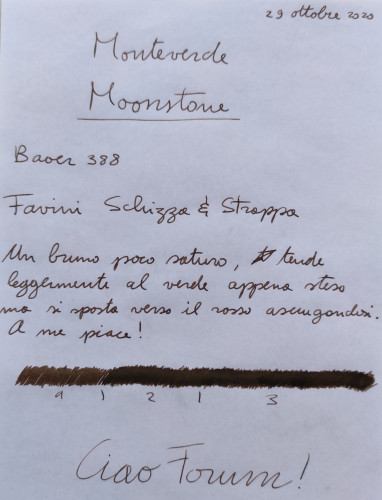 29 ottobre 2020
Monteverde
Moonstone
Baoer 388
Favini Schizza & Strappa
Un bruno poco saturo, tende
leggermente al verde appena steso
ma si sposta verso il rosso asciugandosi.
A me piace!
1 2 1 3
Ciao Forum!